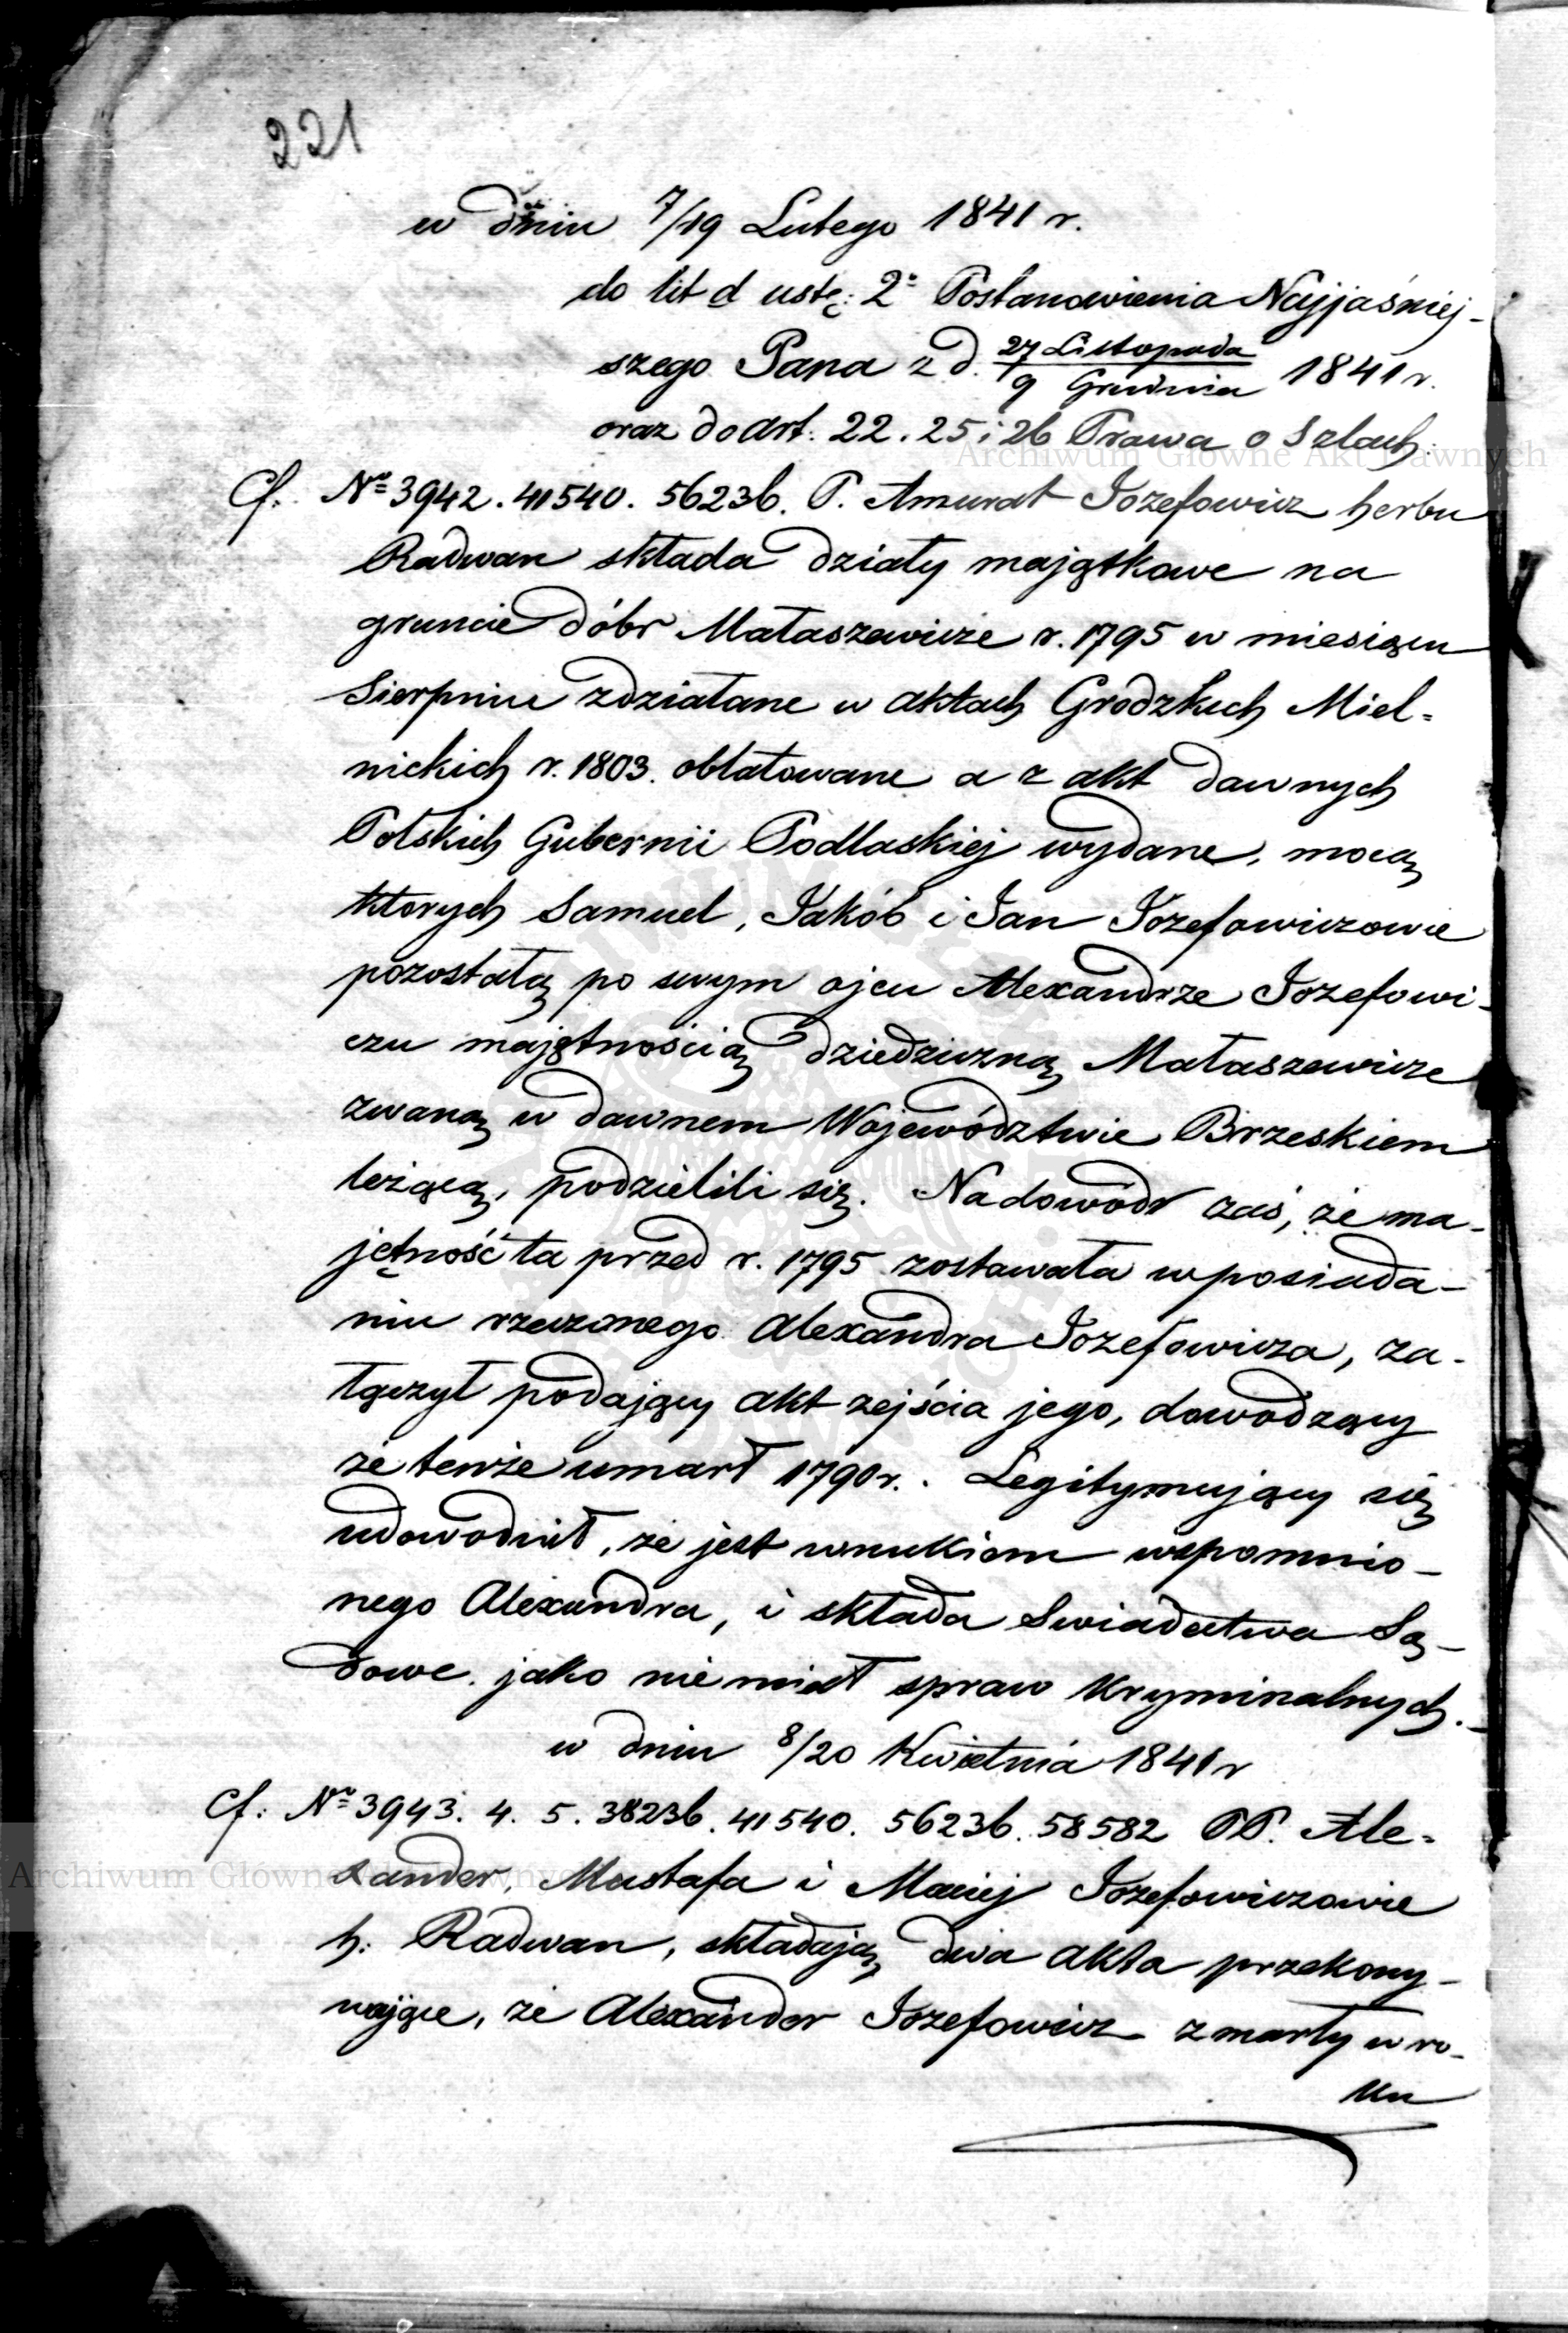 221
w dniu 7/19 Lutego 1841 r.
do lit d ustę: 2º Postanowienia Najjaśniej-
szego Pana z d. 27 Listopada / 9 Grudnia 1841 r.
oraz do art: 22. 25 i 26 Prawa o Szlach:
Cf: Nº 3942. 41540. 56236. P. Amurat Jozefowicz herbu
Radwan składa działy majątkowe na
gruncie dóbr Małaszewicze r. 1795 w miesiącu
Sierpniu zdziałane w aktach Grodzkich Miel=
nickich r. 1803. oblatowane a z akt dawnych
Polskich Gubernii Podlaskiej wydane, mocą
ktorych Samuel, Jakób i Jan Jozefowiczowie
pozostałą po swym ojcu Alexandrze Jozefowi-
czu majętnością dziedziczną Małaszewicze
zwaną w dawnem Województwie Brzeskiem
leżącą, podzielili się. Na dowódr zaś, że ma-
jętność ta przed r. 1795 zostawała w posiada-
niu rzeczonego Alexandra Jozefowicza, za-
łączył podający akt zejścia jego, dowodzący
że tenże umarł 1790 r. . Legitymujący się
udowodnił, że jest wnukiem wspomnio-
nego Alexandra, i składa Swiadectwa Są-
dowe. jako nie miał spraw Kryminalnych.-
w dniu 8/20 Kwietnia 1841 r
Cf: Nº 3943. 4. 5. 38236. 41540. 56236. 58582 PP. Ale=
xander, Mustafa i Maciej Jozefowiczowie
h: Radwan, składają dwa akta przekony-
wające, że Alexander Jozefowicz zmarły w ro-
ku
Archiwum Główne Akt Dawnych
Archiwum Główne Akt Dawnych